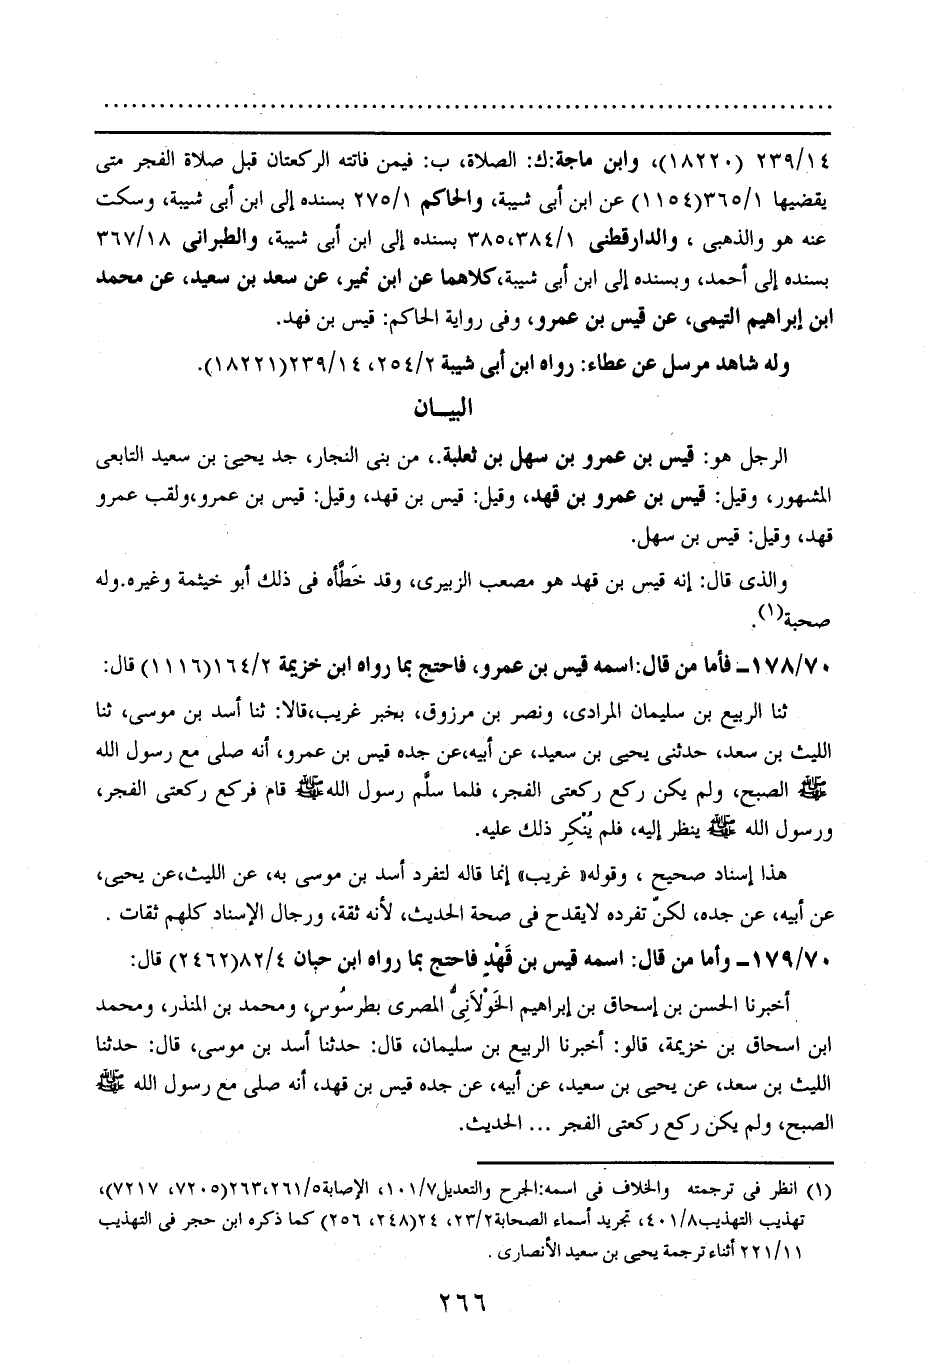 ........................................................................
٢٣٩/١٤ (١٨٢٢٠)، وابن ماجة:ك: الصلاة، ب: فيمن فاتته الركعتان قبل صلاة الفجر متى
يقضيها ٣٦٥/١(١١٥٤) عن ابن أبى شيبة، والحاكم ٢٧٥/١ بسنده إلى ابن أبى شيبة، وسكت
عنه هو والذهبى ، والدارقطنى ٣٨٥،٣٨٤/١ بسنده إلى ابن أبى شيبة، والطبرانى ٣٦٧/١٨
بسنده إلى أحمد، وبسنده إلى ابن أبى شيبة،كلاهما عن ابن نمير، عن سعد بن سعيد، عن محمد
ابن إبراهيم التيمى، عن قيس بن عمرو، وفى رواية الحاكم: قيس بن فهد.
وله شاهد مرسل عن عطاء: رواه ابن أبى شيبة ٢٥٤/٢، ٢٣٩/١٤(١٨٢٢١).
البيـــان
الرجل هو: قيس بن عمرو بن سهل بن ثعلبة.، من بنى النجار، جد يحيى بن سعيد التابعى
المشهور، وقيل: قيس بن عمرو بن قهد، وقيل: قيس بن قهد، وقيل: قيس بن عمرو،ولقب عمرو
قهد، وقيل: قيس بن سهل.
والذى قال: إنه قيس بن قهد هو مصعب الزبيرى، وقد خَطَّأه فى ذلك أبو خيثمة وغيره.وله
صحبة(١).
١٧٨/٧٠ـ فأما من قال:اسمه قيس بن عمرو، فاحتج بما رواه ابن خزيمة ١٦٤/٢(١١١٦) قال:
ثنا الربيع بن سليمان المرادى، ونصر بن مرزوق، بخبر غريب،قالا: ثنا أسد بن موسى، ثنا
الليث بن سعد، حدثنى يحيى بن سعيد، عن أبيه،عن جده قيس بن عمرو، أنه صلى مع رسول الله
ﷺ الصبح، ولم يكن ركع ركعتى الفجر، فلما سلَّم رسول اللهﷺ قام فركع ركعتى الفجر،
ورسول الله ﷺ ينظر إليه، فلم يُنْكِر ذلك عليه.
هذا إسناد صحيح ، وقوله« غريب» إنما قاله لتفرد أسد بن موسى به، عن الليث،عن يحيى،
عن أبيه، عن جده، لكنّ تفرده لايقدح فى صحة الحديث، لأنه ثقة، ورجال الإسناد كلهم ثقات .
١٧٩/٧٠ـ وأما من قال: اسمه قيس بن قَهْدٍ فاحتج بما رواه ابن حبان ٨٢/٤(٢٤٦٢) قال:
أخبرنا الحسن بن إسحاق بن إبراهيم الخَوْلَانِىُّ المصرى بطرسُوس، ومحمد بن المنذر، ومحمد
ابن اسحاق بن خزيمة، قالو: أخبرنا الربيع بن سليمان، قال: حدثنا أسد بن موسى، قال: حدثنا
الليث بن سعد، عن يحيى بن سعيد، عن أبيه، عن جده قيس بن قهد، أنه صلى مع رسول الله ﷺ
الصبح، ولم يكن ركع ركعتى الفجر ... الحديث.
(١) انظر فى ترجمته والخلاف فى اسمه:الجرح والتعديل١٠١/٧، الإصابة٢٦٣،٢٦١/٥(٧٢٠٥، ٧٢١٧)،
تهذيب التهذيب٤٠١/٨، تجريد أسماء الصحابة٢٣/٢، ٢٤(٢٤٨، ٢٥٦) كما ذكره ابن حجر فى التهذيب
٢٢١/١١ أثناء ترجمة يحيى بن سعيد الأنصارى .
٢٦٦